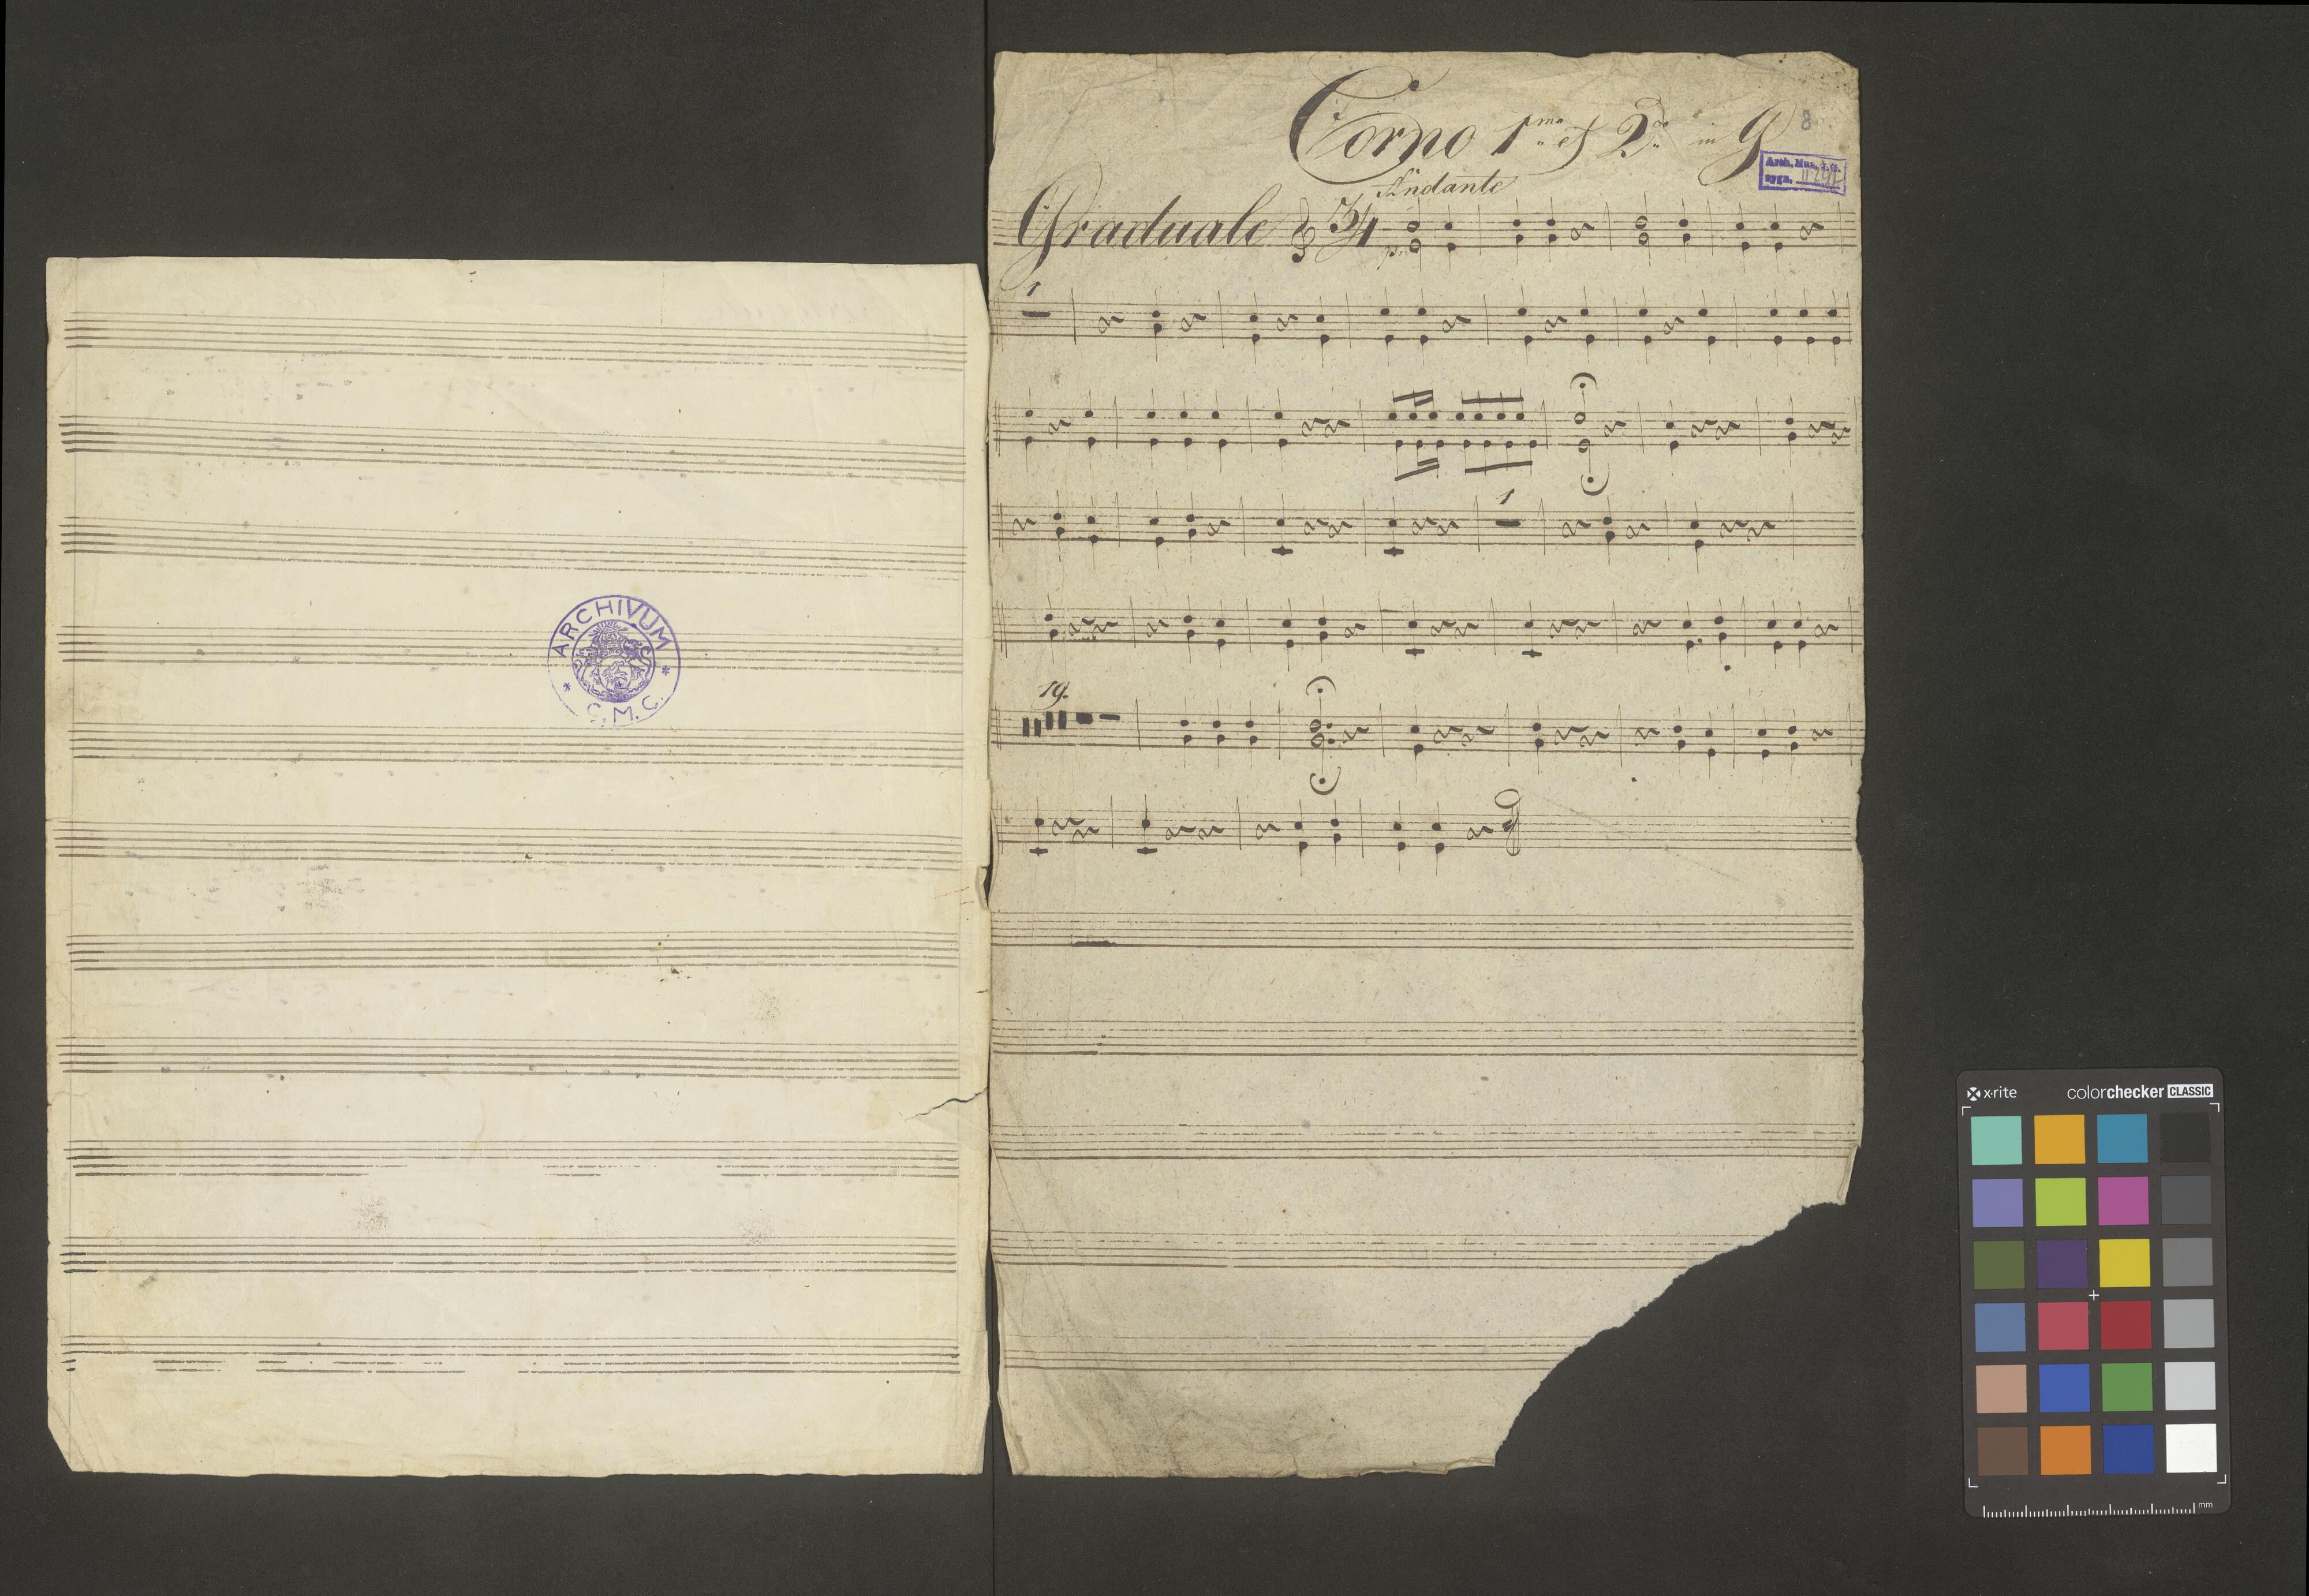 ARCHIVUM
* C. M. C. *
Corno 1mo et 2do in G
8
Arch. Mus. J. G.
sygn.
Andante
Graduale 3/4
p.
1
1
19.
x·rite colorchecker CLASSIC
mm